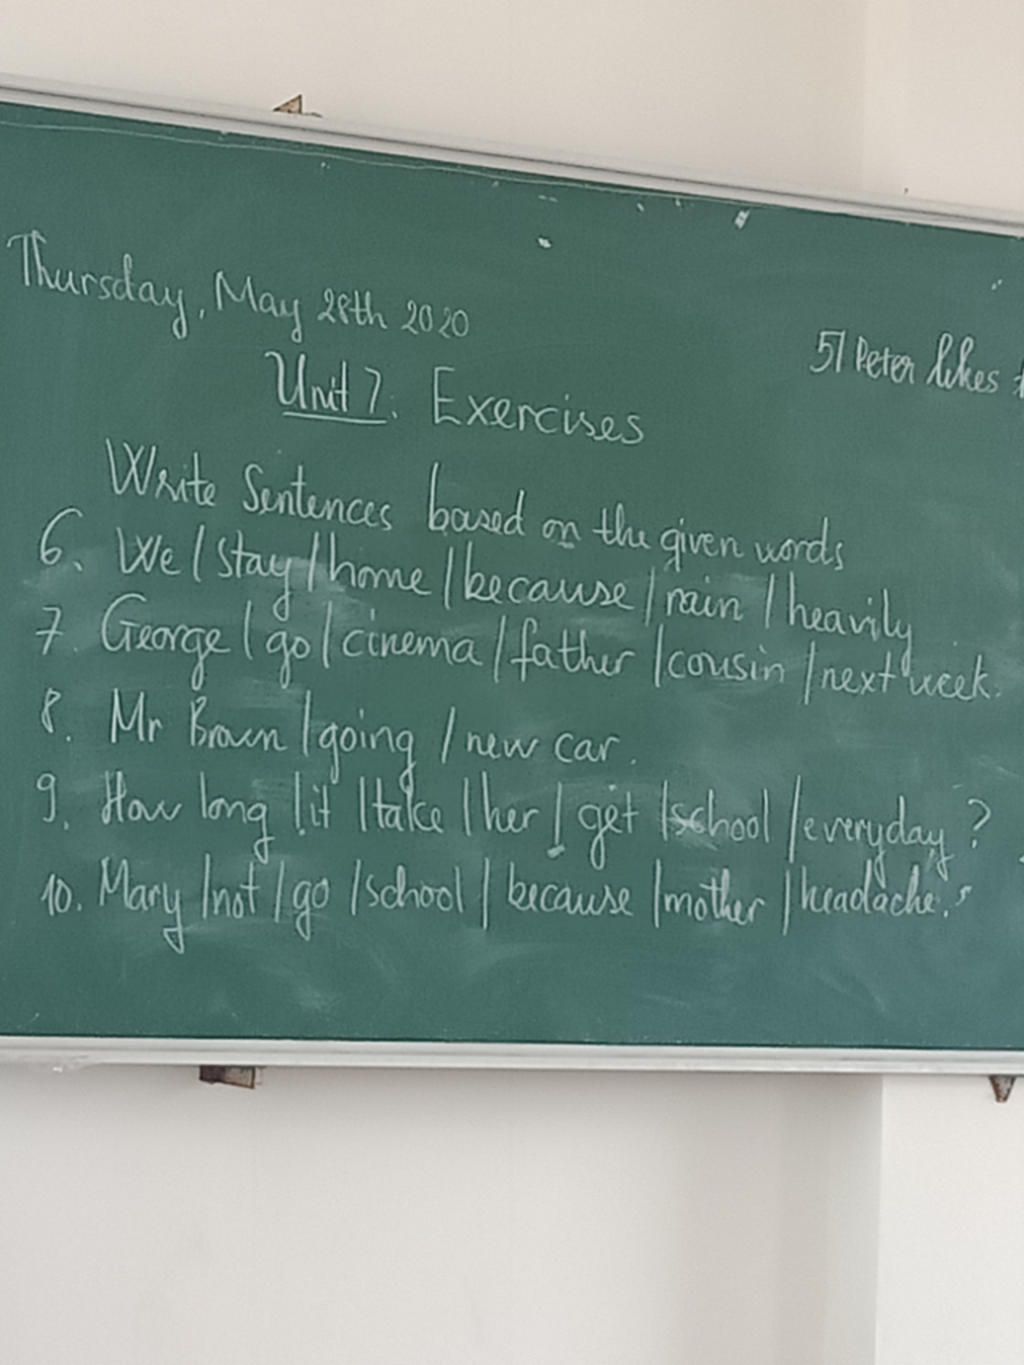 Thursday, May 28th 2020
Unit 7. Exercises
Write Sentences based on the given words
6. We / stay / home / because / rain / heavily
7. George / go / cinema / father / cousin / next week.
8. Mr Brown / going / new car.
9. How long / it / take / her / get / school / everyday ?
10. Mary / not / go / school / because / mother / headache.
5/ Peter likes